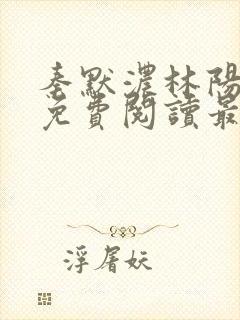 秦默濃林陽
免費閱讀最
浮屠妖